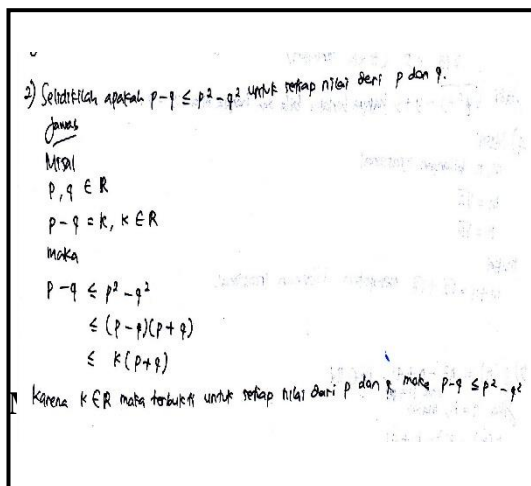 2) Selidikilah apakah p-q ≤ p²-q² untuk setiap nilai dari p dan q.
Jawab
Misal
p, q ∈ R
p-q = k, k ∈ R
maka
p-q ≤ p²-q²
≤ (p-q)(p+q)
≤ k(p+q)
Karena k ∈ R maka terbukti untuk setiap nilai dari p dan q maka p-q ≤ p²-q²